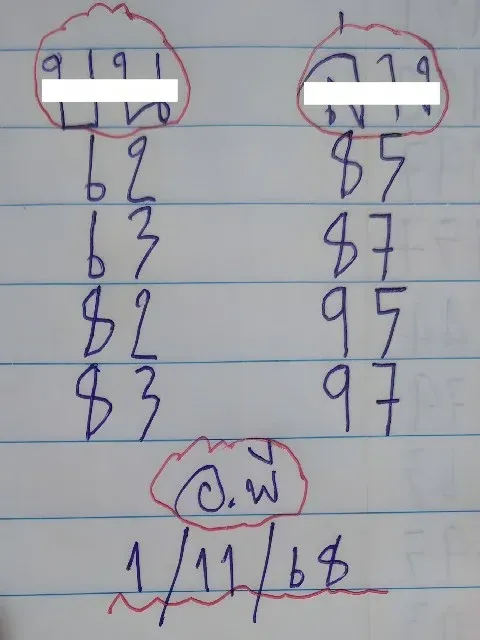 62 85
63 87
82 95
83 97
อ.พี
1/11/68